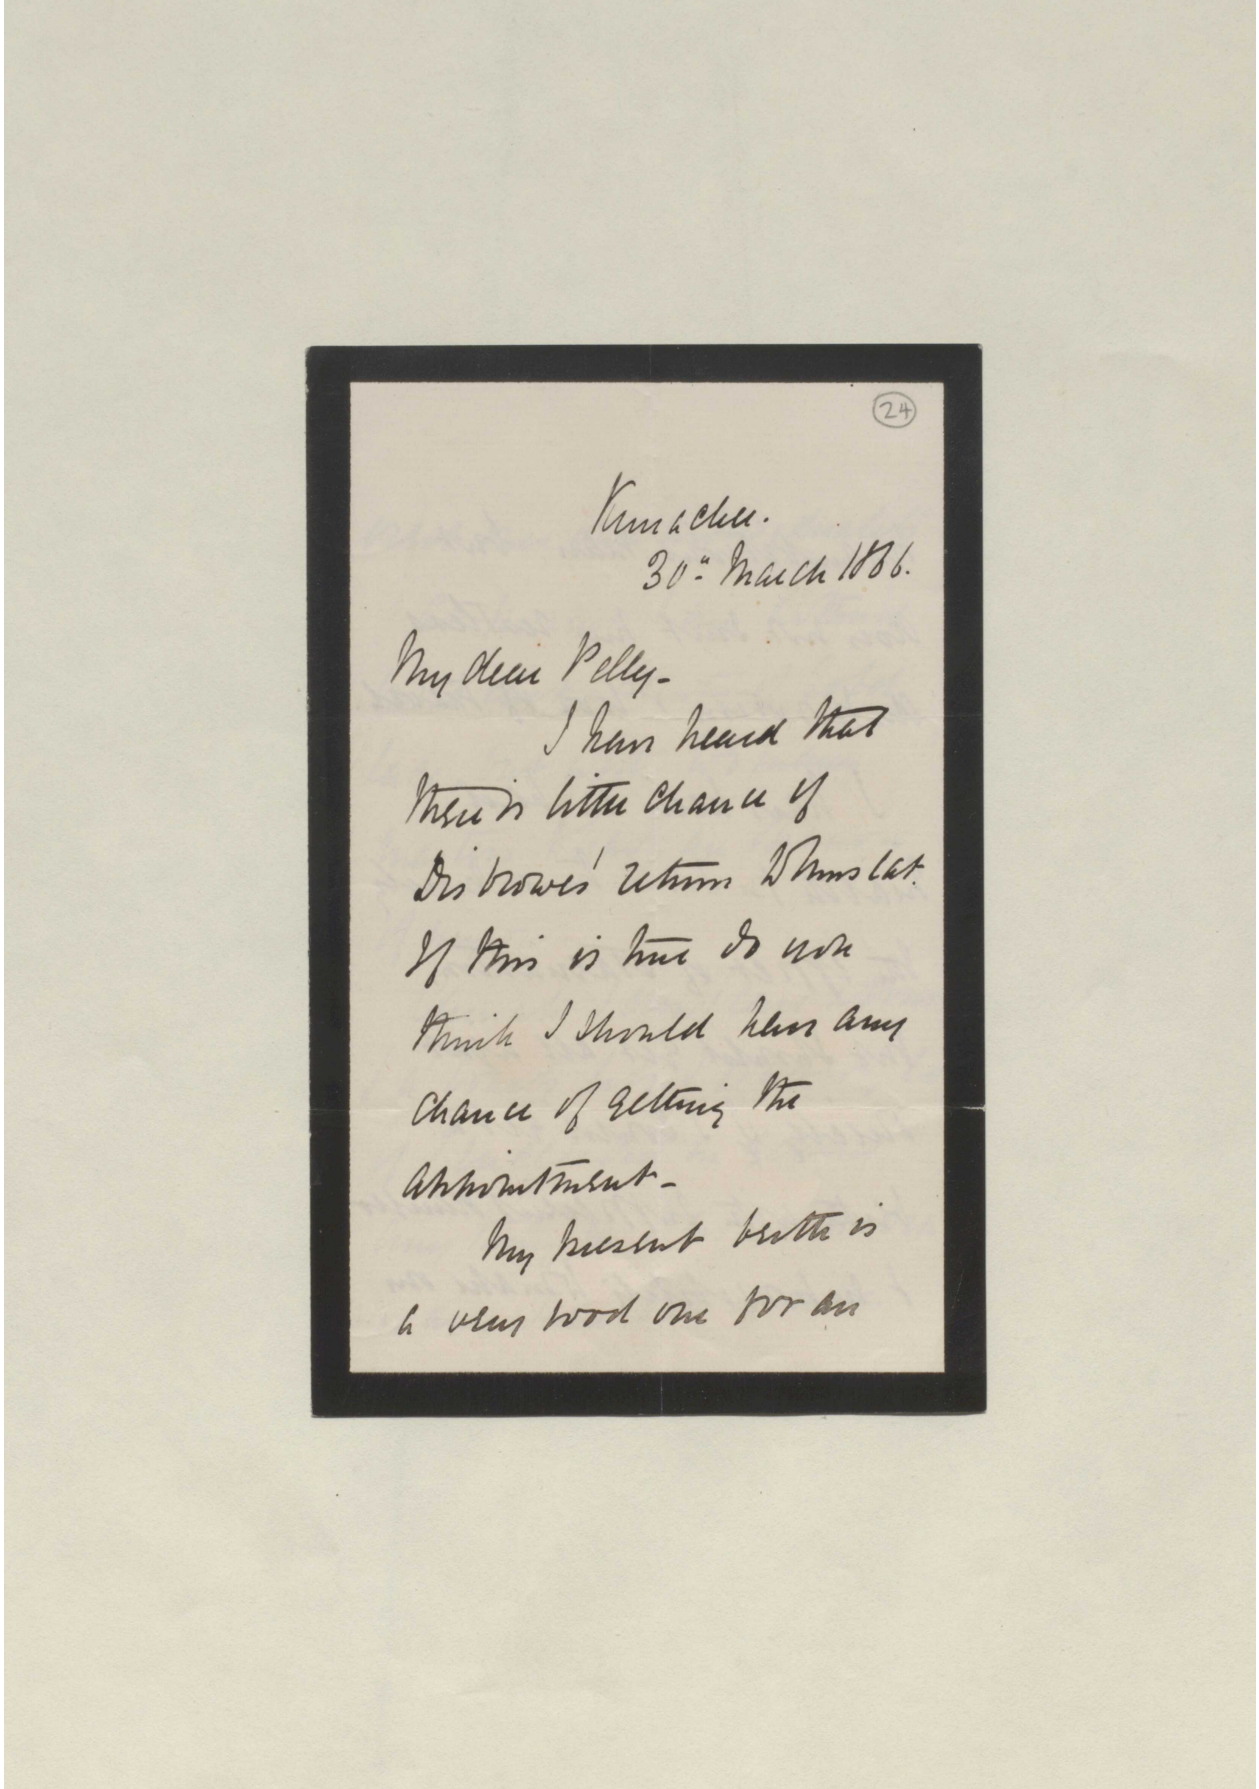 24
Kurrachee.
30th March 1866.
My dear Pelly-
I have heard that
there is little chance of
Disbrowe's return to Muscat.
If this is true do you
think I should have any
chance of getting the
appointment-
My present berth is
a very good one for an